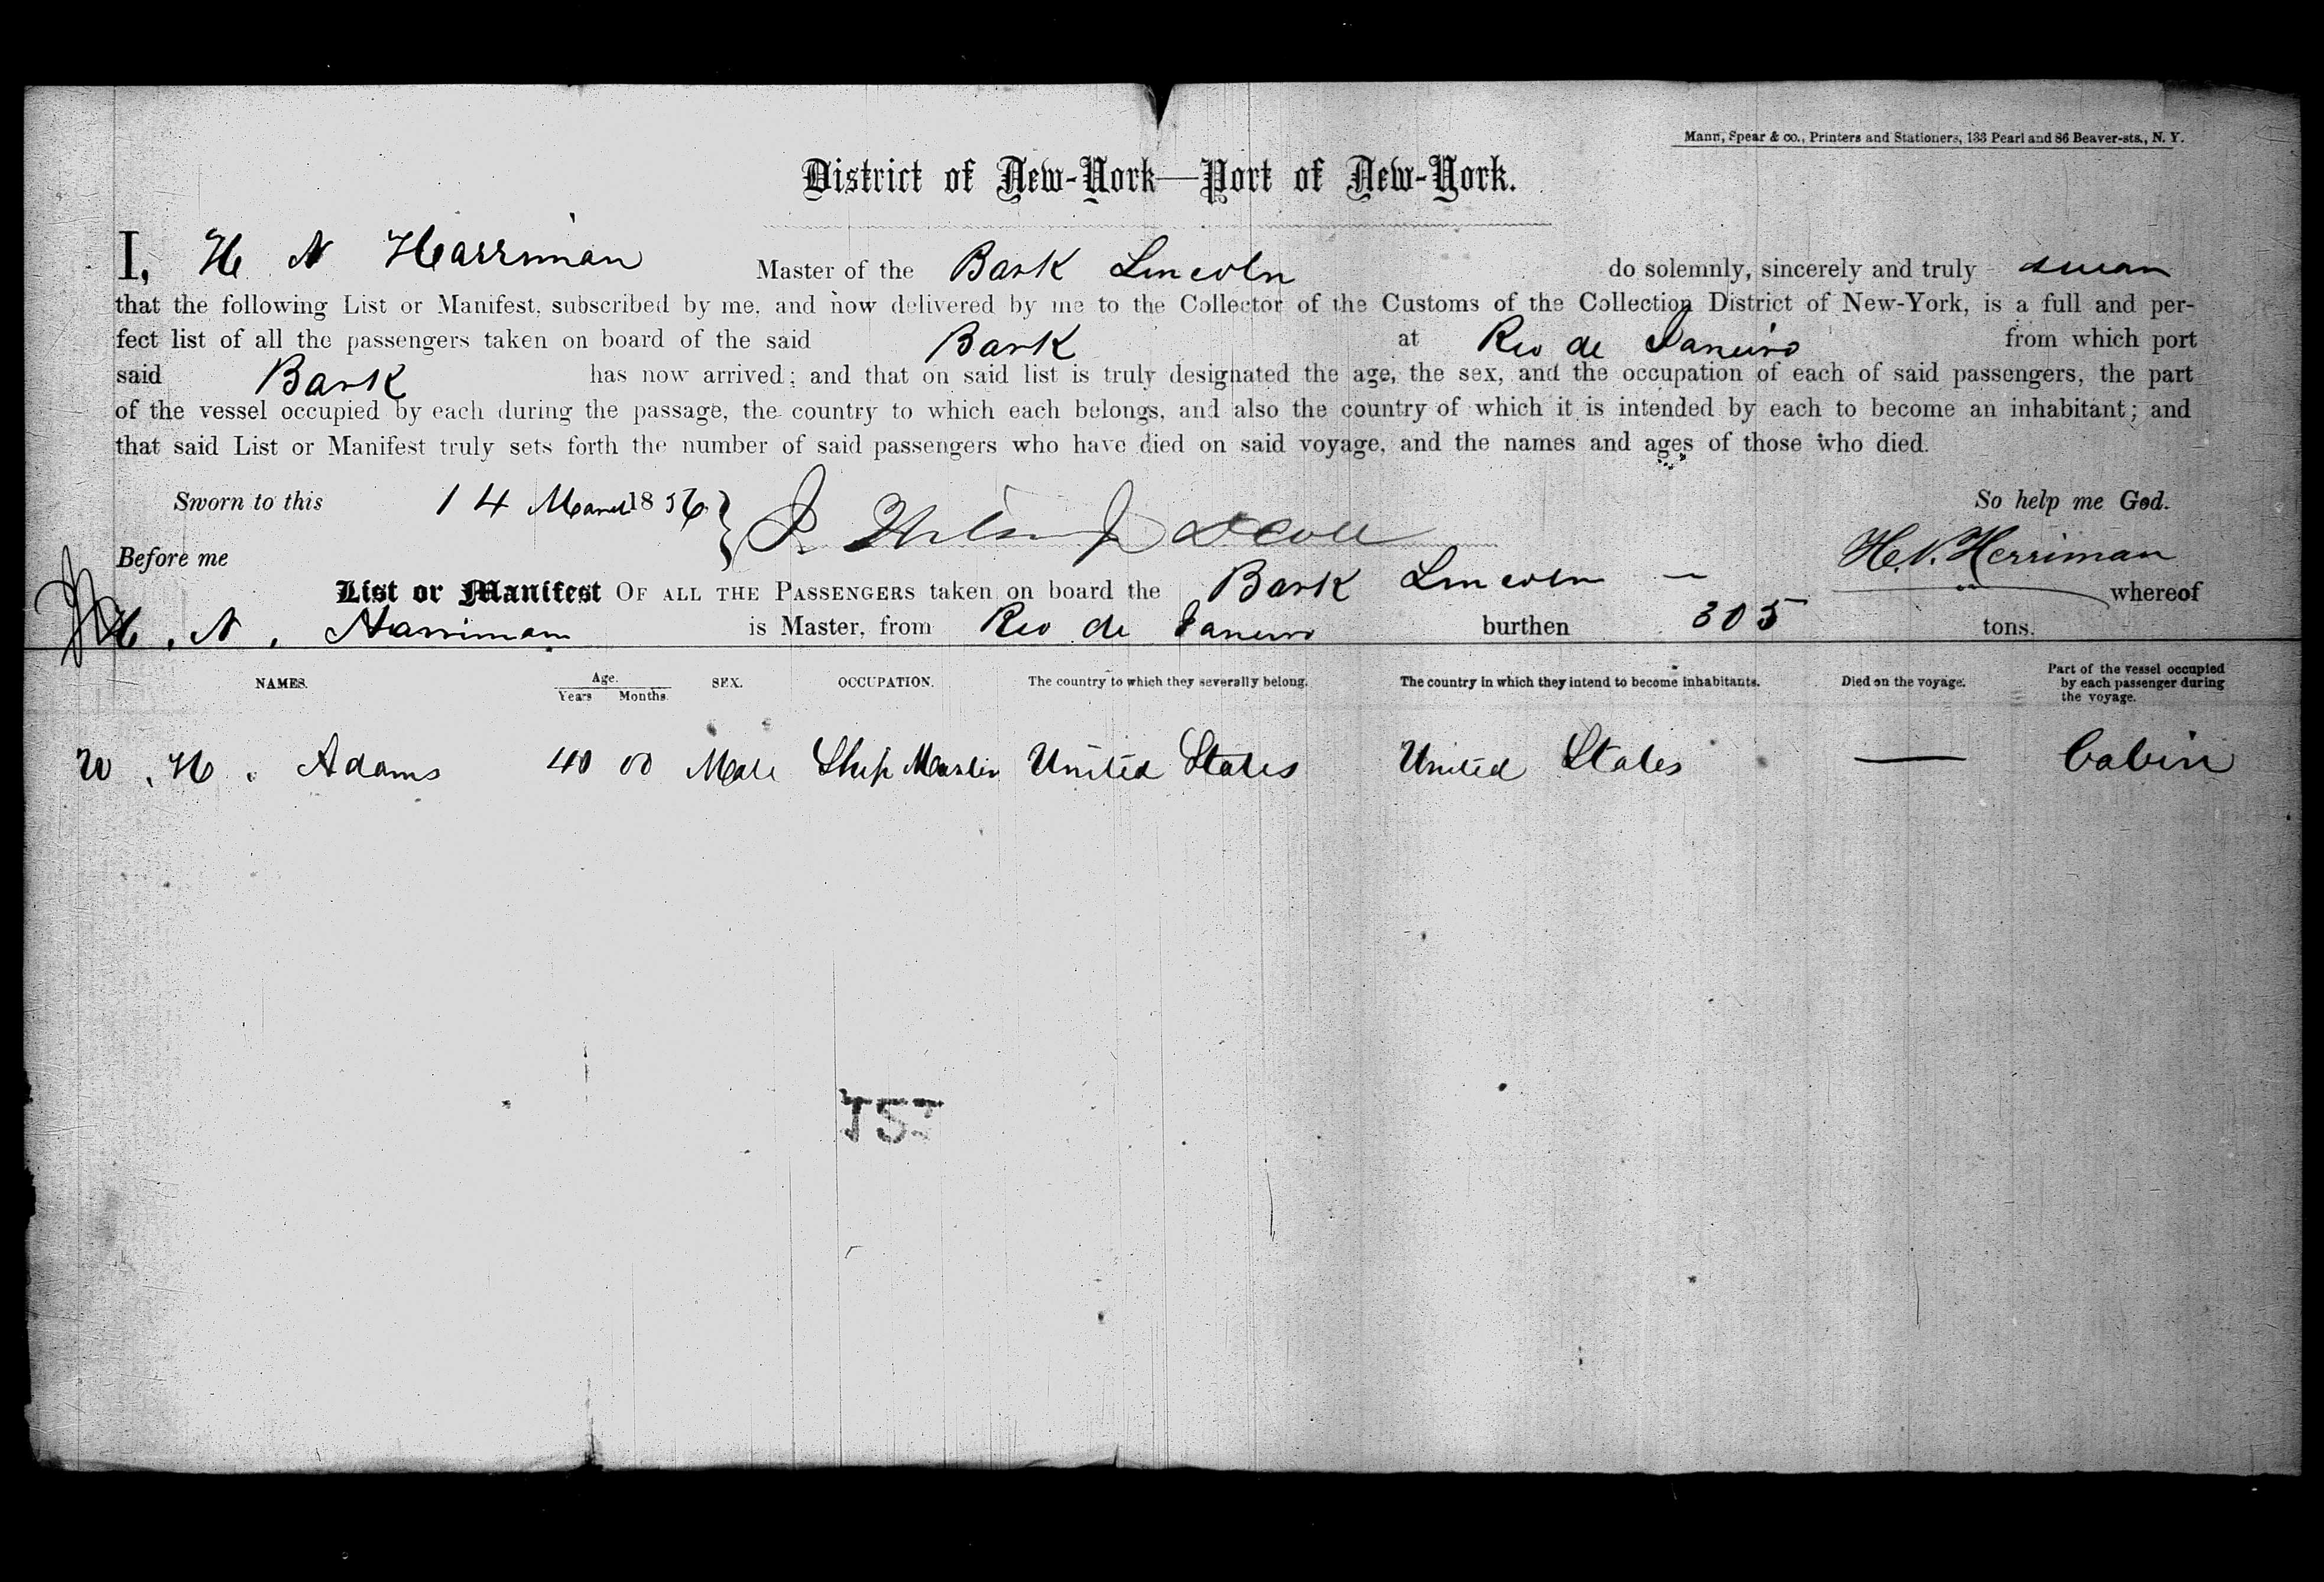 Mann, Spear & co., Printers and Stationers, 133 Pearl and 86 Beaver-sts., N. Y.
District of New-York—Port of New-York.
I, H N Harriman Master of the Bark Lincoln do solemnly, sincerely and truly swear
that the following List or Manifest, subscribed by me, and now delivered by me to the Collector of the Customs of the Collection District of New-York, is a full and per-
fect list of all the passengers taken on board of the said Bark at Rio de Janeiro from which port
said Bark has now arrived; and that on said list is truly designated the age, the sex, and the occupation of each of said passengers, the part
of the vessel occupied by each during the passage, the country to which each belongs, and also the country of which it is intended by each to become an inhabitant; and
that said List or Manifest truly sets forth the number of said passengers who have died on said voyage, and the names and ages of those who died.
Sworn to this 14 March 1856 So help me God.
Before me H. N. Herriman
List or Manifest OF ALL THE PASSENGERS taken on board the Bark Lincoln — whereof
H. N. Harriman is Master, from Rio de Janeiro burthen 305 tons.
NAMES. Age. Years Months. SEX. OCCUPATION. The country to which they severally belong. The country in which they intend to become inhabitants. Died on the voyage. Part of the vessel occupied by each passenger during the voyage.
W. H. Adams 40 00 Male Ship Master United States United States — Cabin